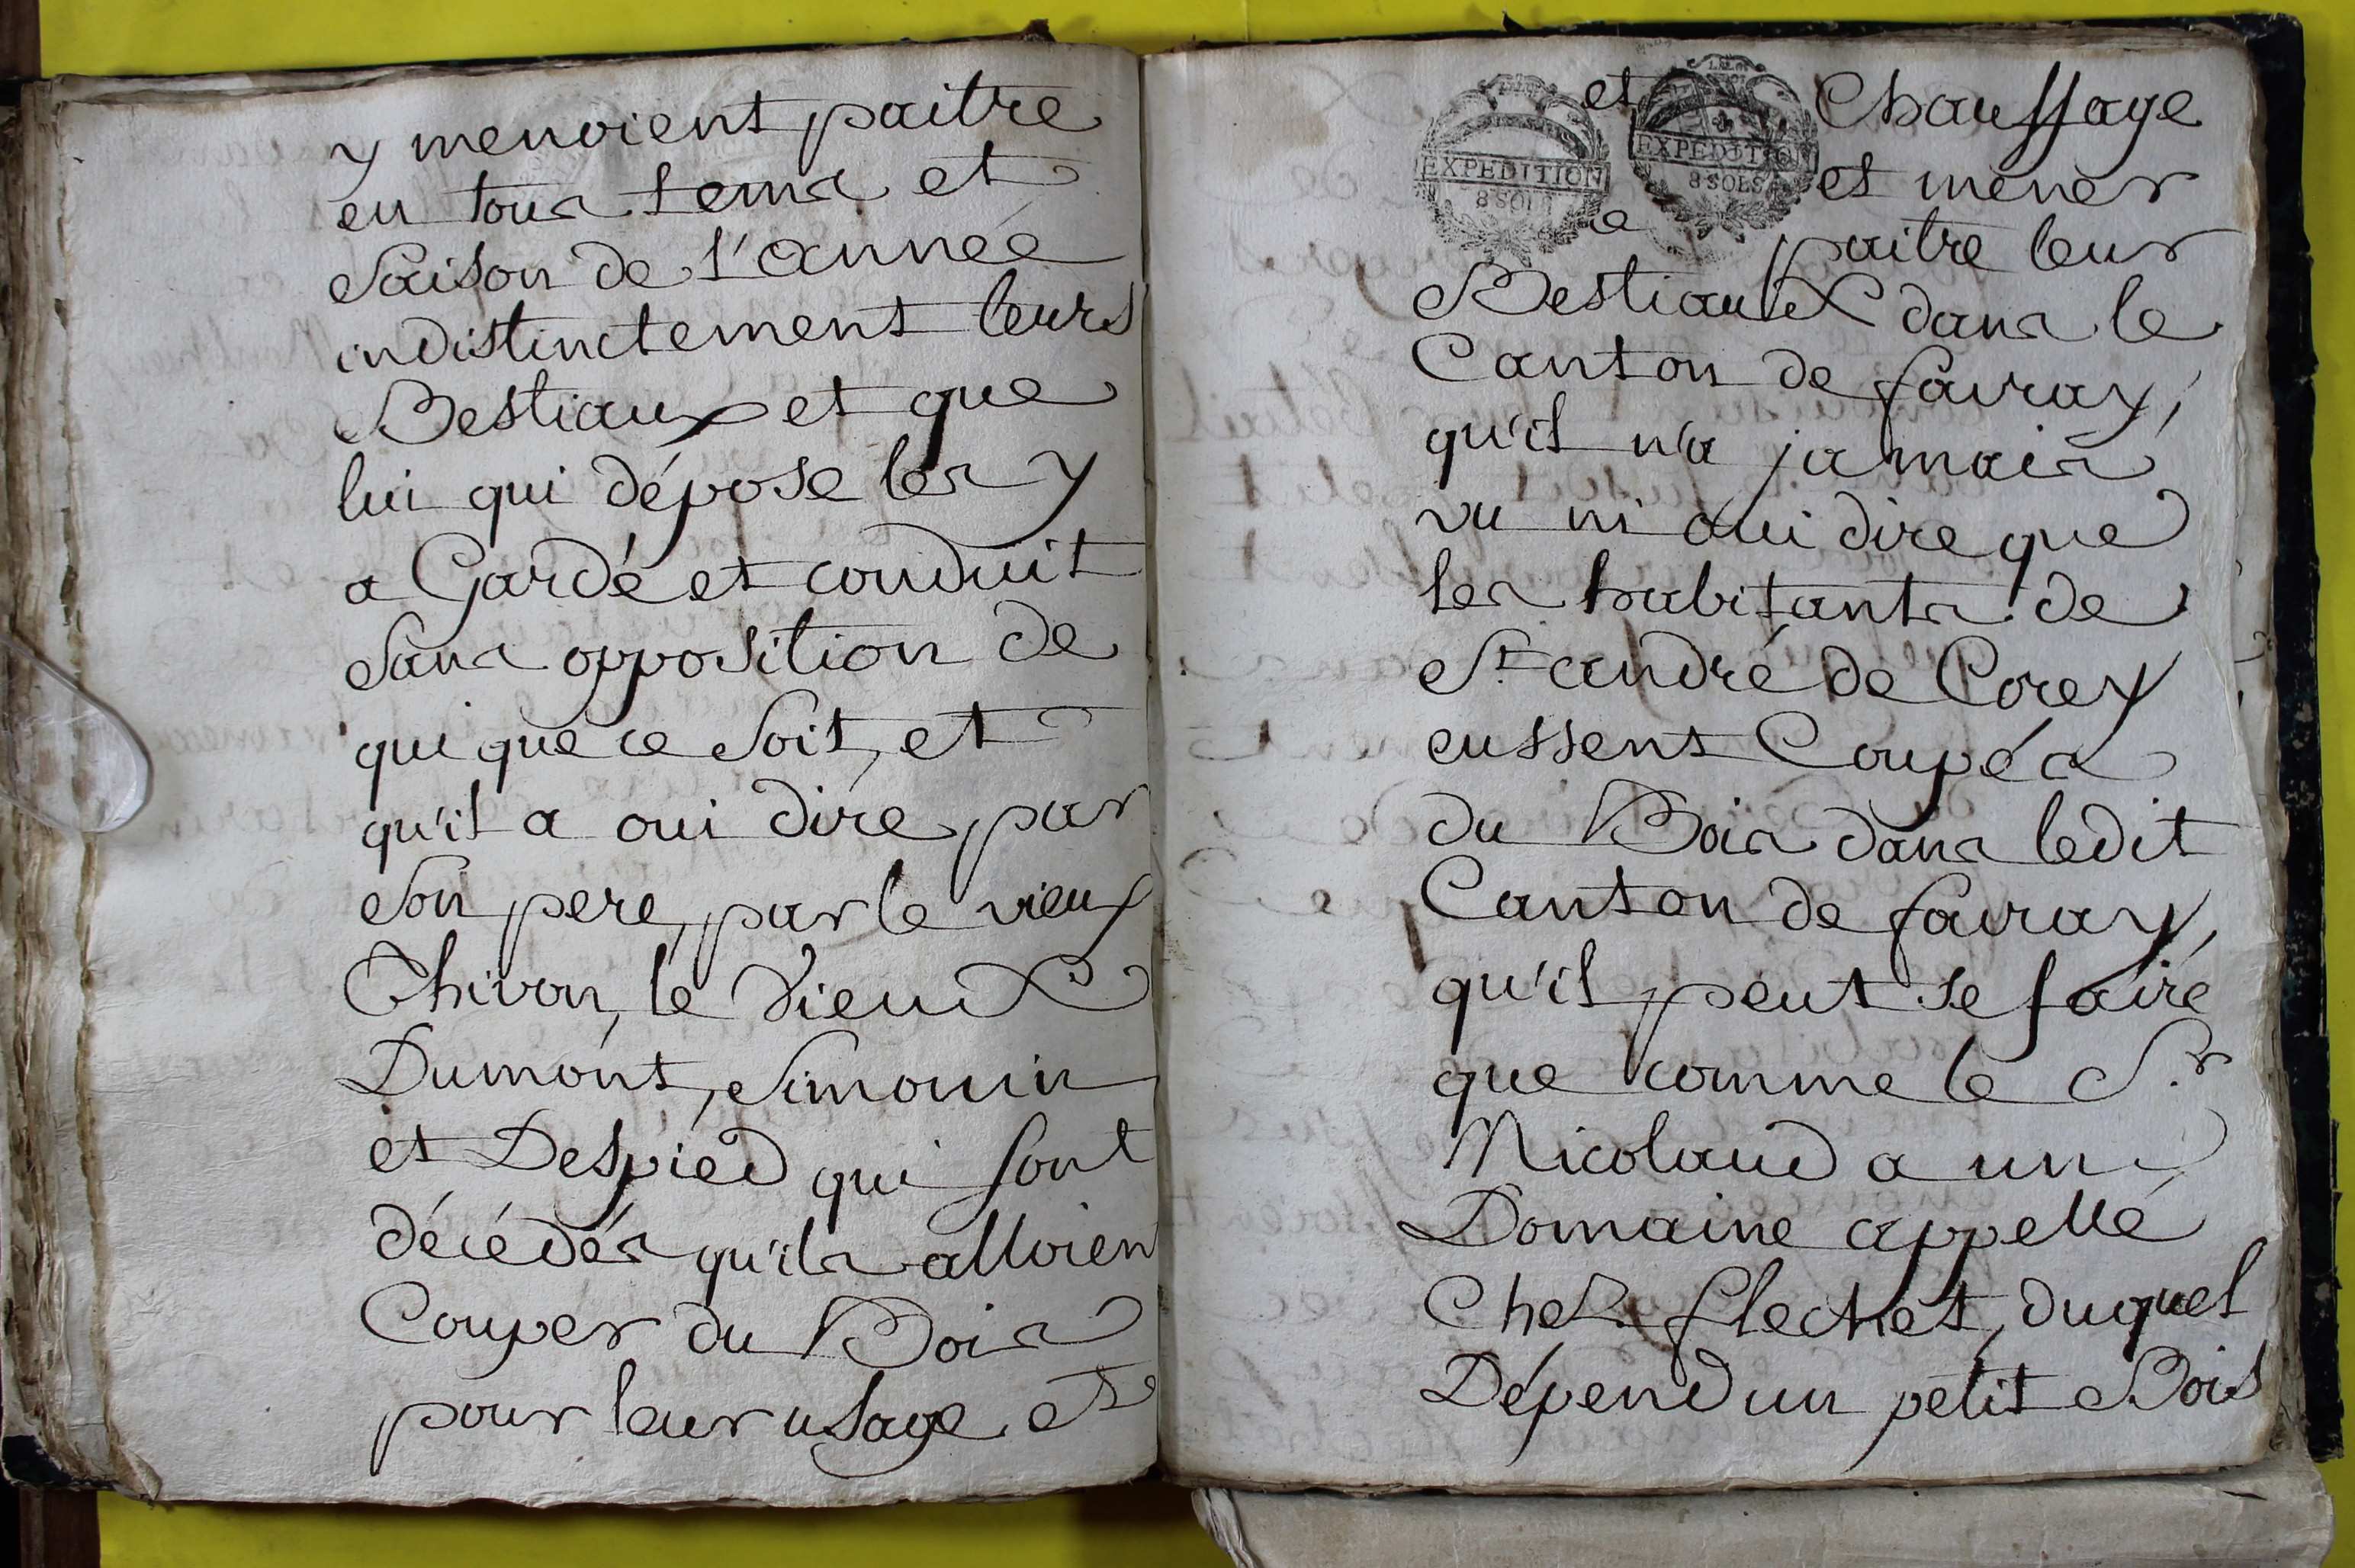 y menoient paitre
en tous tems et
Saison de l'année
indistinctement leurs
Bestiaux et que
lui qui dépose les y
a Gardé et conduit
Sans opposition de
qui que ce Soit, et
qu'il a oui dire par
Son pere, par le vieux
Thivon, le Vieux
Dumont, Simonin
et Despied qui sont
décédés qu'ils alloien
Couper du Bois
pour leur usage et
et Chauffage
EXPEDITION
8 SOLS
EXPEDITION
8 SOLS
et mener
paitre leur
Bestiaux dans le
Canton de favray,
qu'il n'a jamais
vu ni oui dire que
les habitants de
St andré de Corcy
eussent Coupés
du Bois dans ledit
Canton de favray,
qu'il peut se faire
que comme le Sr
Nicolaud a un
Domaine appellé
Chez flechet, duquel
Dépend un petit Bois